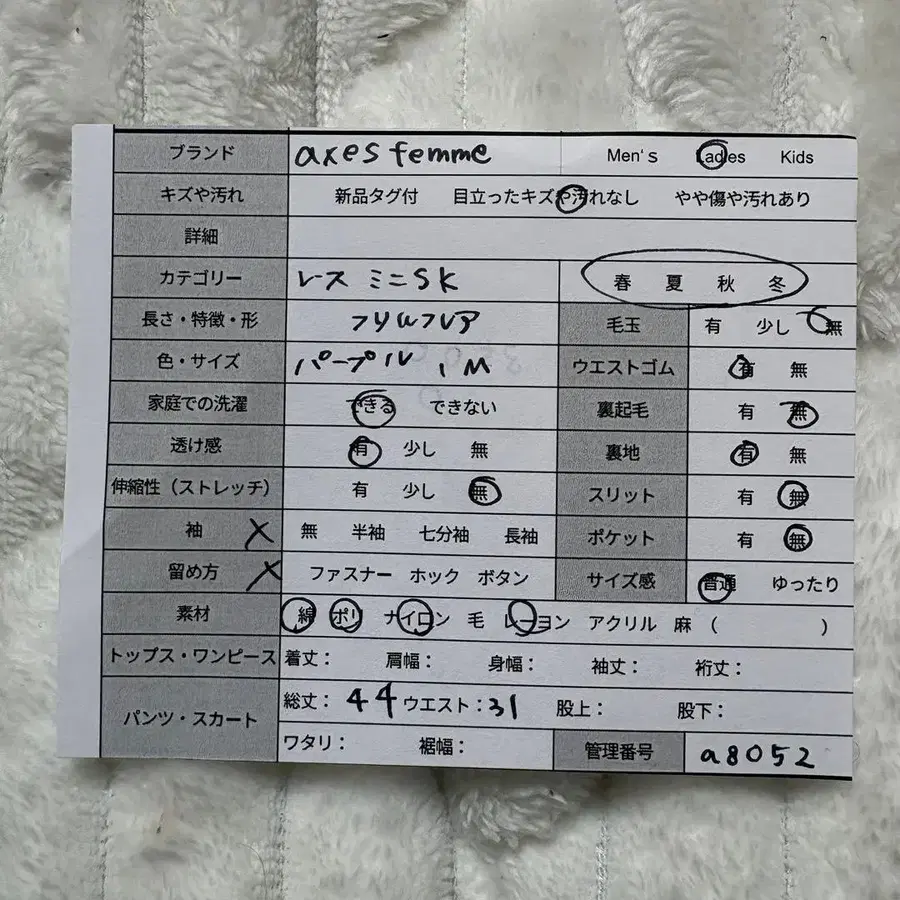 ブランド axes femme Men's Ladies Kids
キズや汚れ 新品タグ付 目立ったキズや汚れなし やや傷や汚れあり
詳細
カテゴリー レース ミニSK 春 夏 秋 冬
長さ・特徴・形 フリルフレア 毛玉 有 少し 無
色・サイズ パープル , M ウエストゴム 有 無
家庭での洗濯 できる できない 裏起毛 有 無
透け感 有 少し 無 裏地 有 無
伸縮性（ストレッチ） 有 少し 無 スリット 有 無
袖 X 無 半袖 七分袖 長袖 ポケット 有 無
留め方 X ファスナー ホック ボタン サイズ感 普通 ゆったり
素材 綿 ポリ ナイロン 毛 レーヨン アクリル 麻 （ ）
トップス・ワンピース 着丈： 肩幅： 身幅： 袖丈： 裄丈：
パンツ・スカート 総丈： 44 ウエスト：31 股上： 股下：
ワタリ： 裾幅： 管理番号 a8052